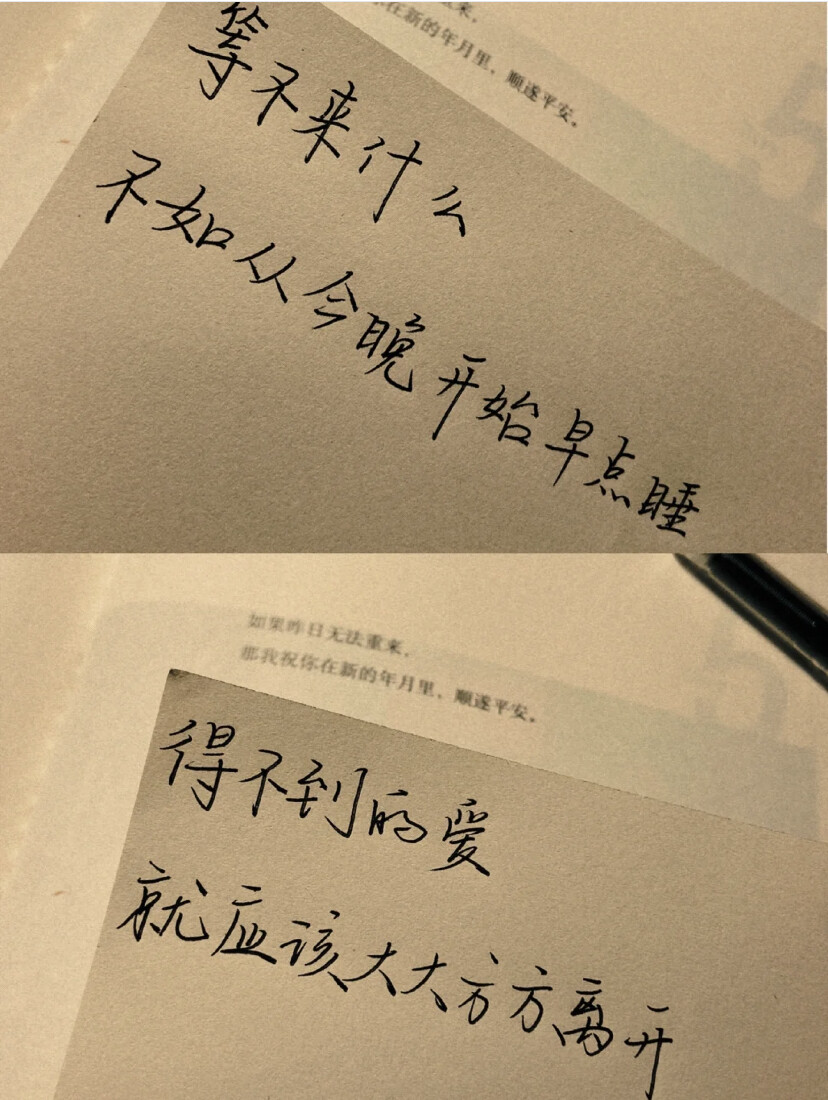 重来，
你在新的年月里，顺遂平安。
等不来什么
不如从今晚开始早点睡
如果昨日无法重来，
那我祝你在新的年月里，顺遂平安。
得不到的爱
就应该大大方方离开